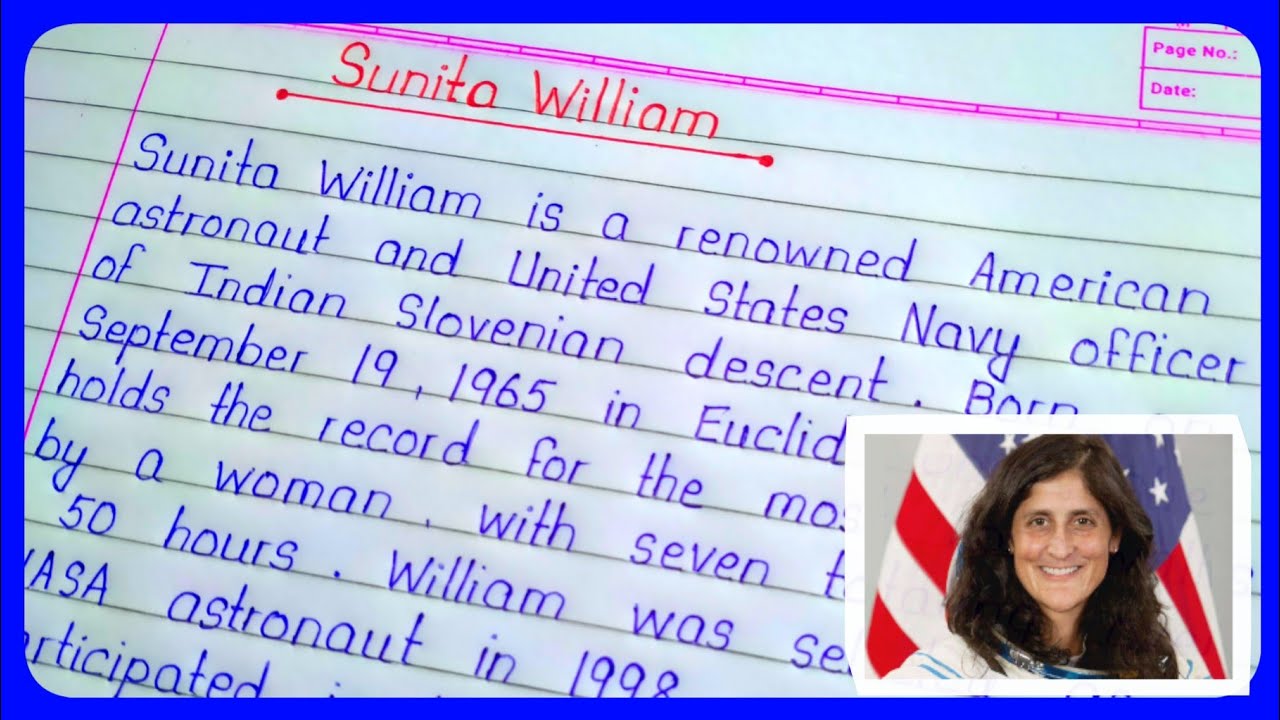 Page No.:
Date:
Sunita William
Sunita William is a renowned American
astronaut and United States Navy officer
of Indian Slovenian descent. Born on
September 19, 1965 in Euclid
holds the record for the
by a woman, with seven
50 hours. William was
NASA astronaut in 1998